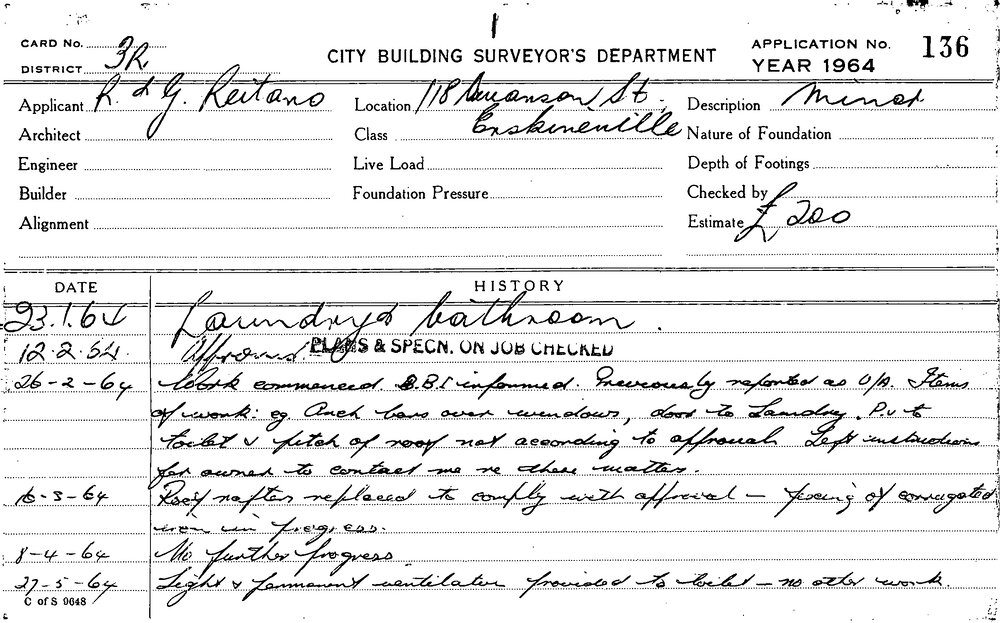 1
CARD No.
DISTRICT 3R.
CITY BUILDING SURVEYOR'S DEPARTMENT
APPLICATION No. 136
YEAR 1964
Applicant R. & G. Reitano
Location 118 Swanson St.
Erskineville
Description Minor
Architect
Class
Nature of Foundation
Engineer
Live Load
Depth of Footings
Builder
Foundation Pressure
Checked by
Alignment
Estimate £200
DATE HISTORY
23.1.64 Laundry & bathroom.
12.2.64. Approved. PLANS & SPECN. ON JOB CHECKED
26-2-64 Work commenced. B.B.I informed. Previously reported as U/A. Items
of work: eg Arch bars over windows, door to Laundry, P.v to
toilet & pitch of roof not according to approval. Left instructions
for owner to contact me re these matters.
16-3-64 Roof rafters replaced to comply with approval — fixing of corrugated
iron in progress.
8-4-64 No further progress
27-5-64 Light & permanent ventilation provided to toilet — no other work.
C of S 9648